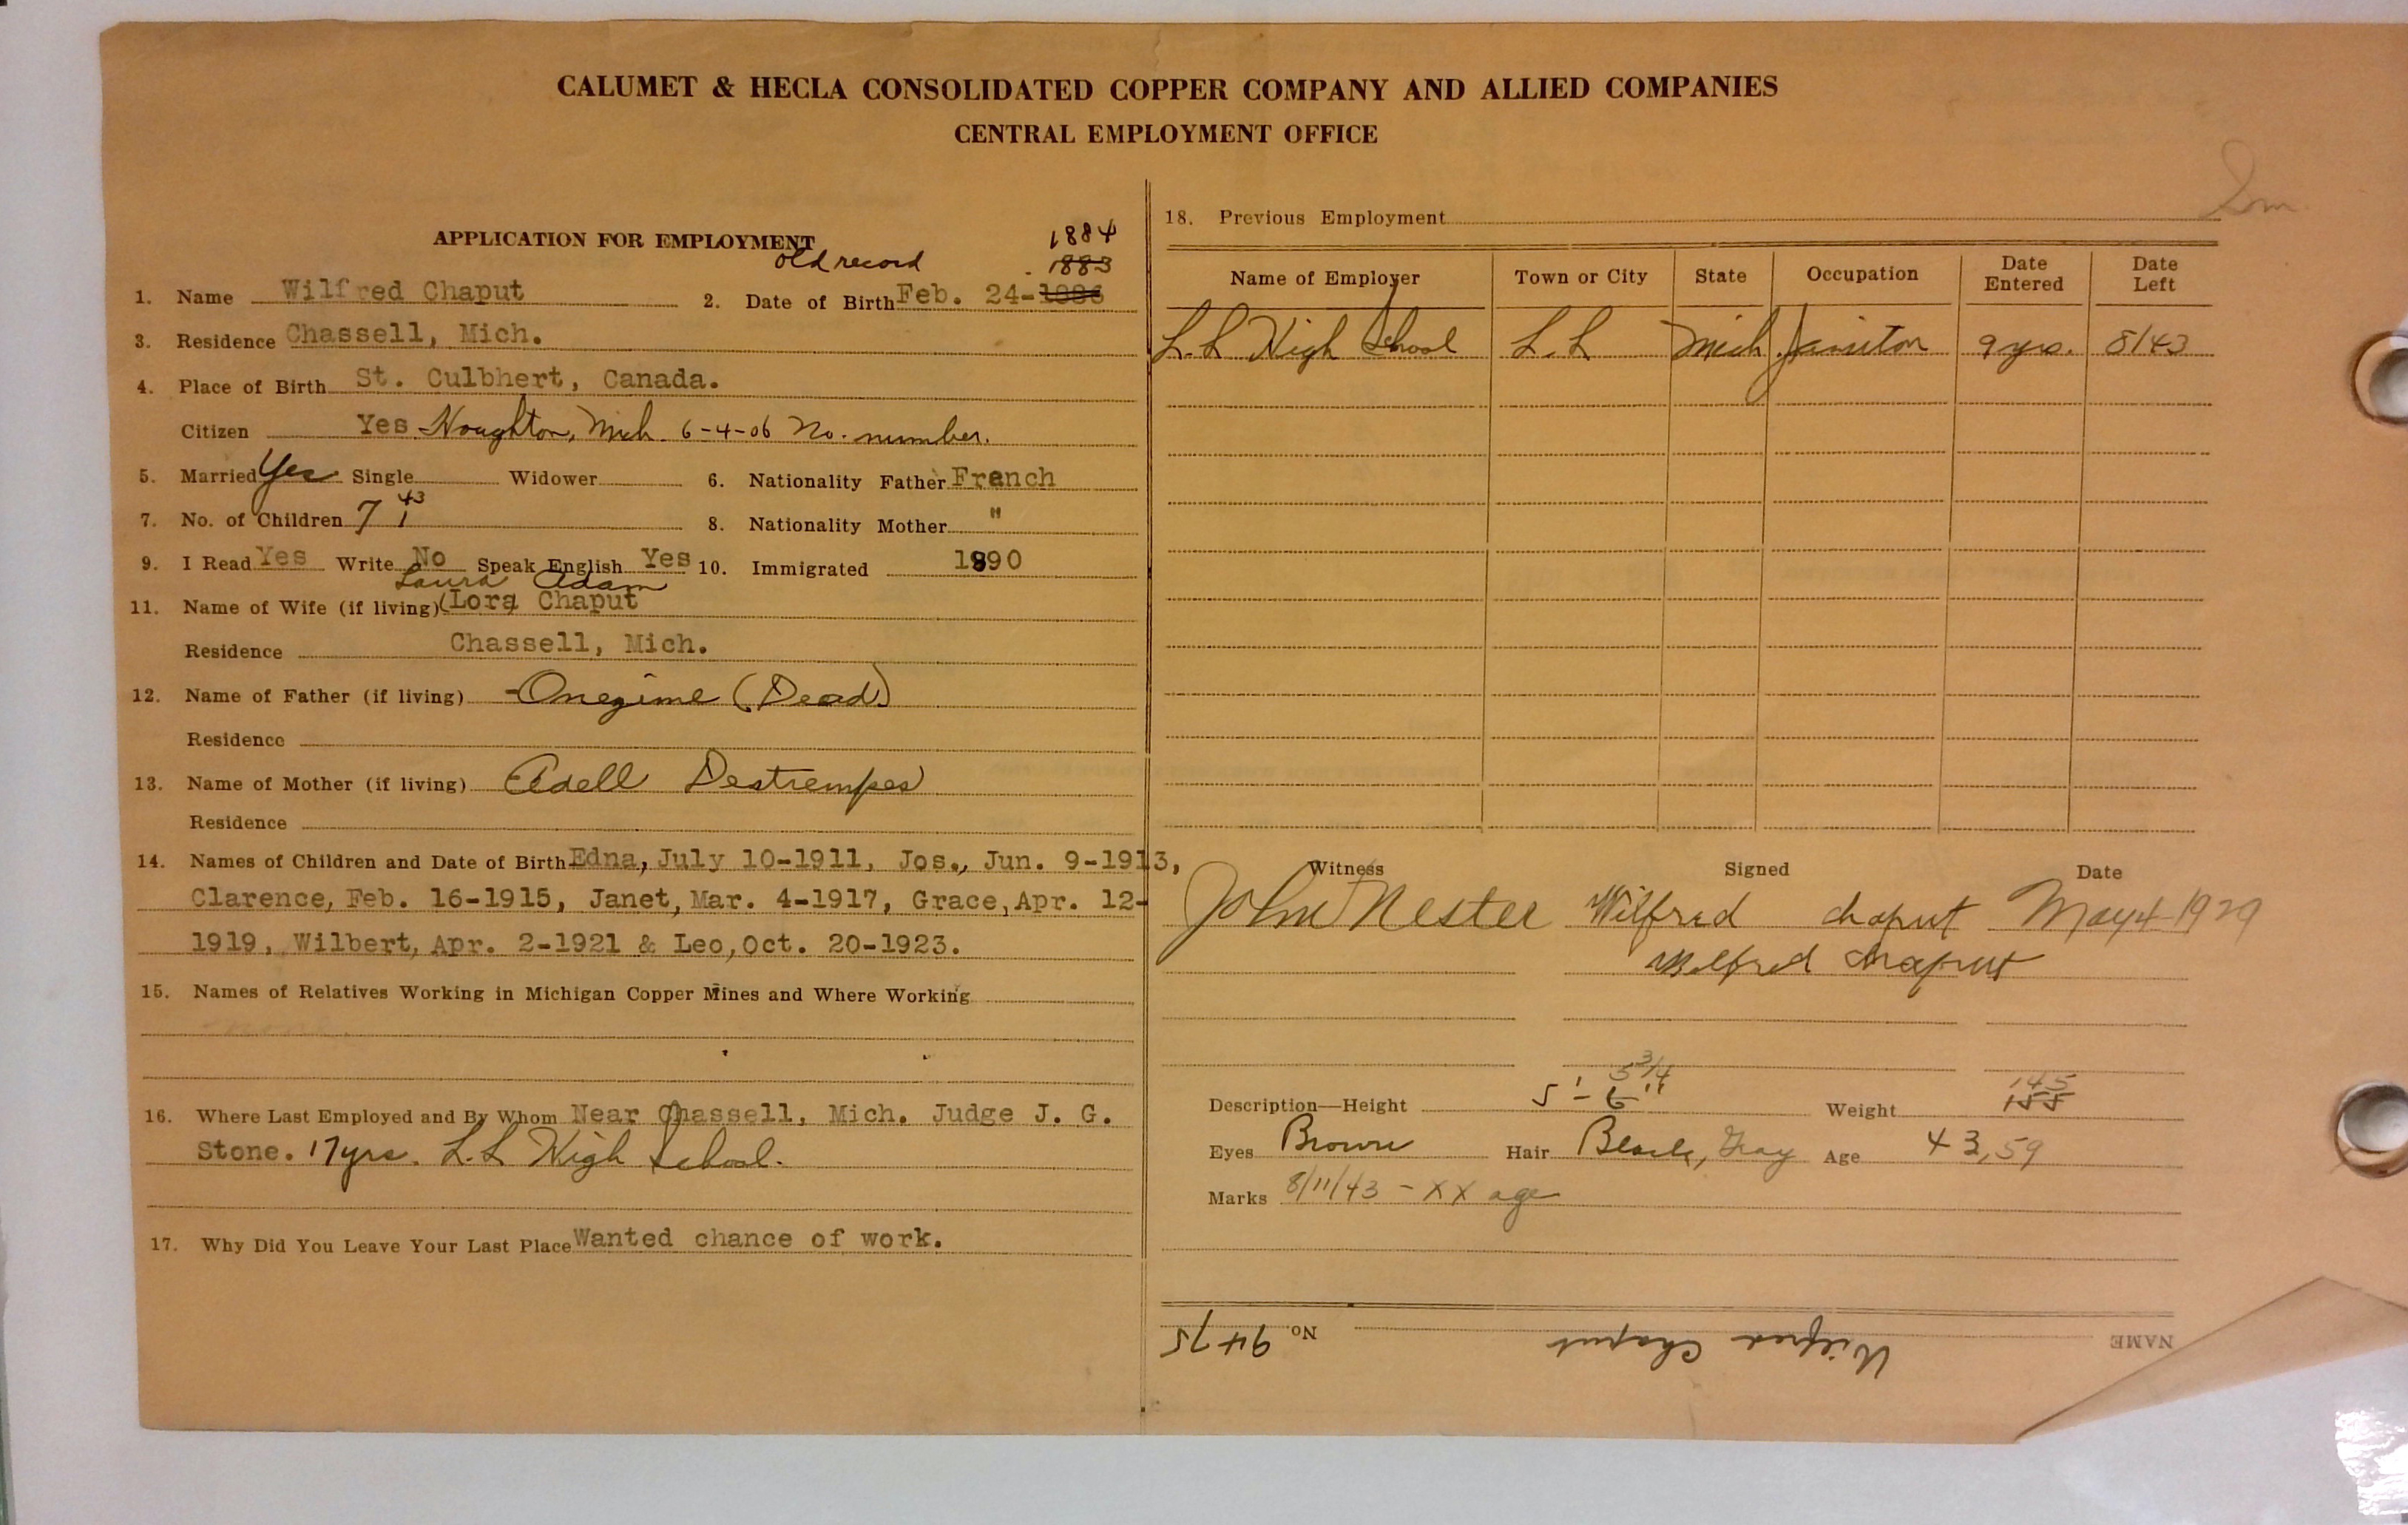 CALUMET & HECLA CONSOLIDATED COPPER COMPANY AND ALLIED COMPANIES
CENTRAL EMPLOYMENT OFFICE
APPLICATION FOR EMPLOYMENT
1884
old record 1883
1. Name Wilfred Chaput 2. Date of Birth Feb. 24-1886
3. Residence Chassell, Mich.
4. Place of Birth St. Culbhert, Canada.
Citizen Yes Houghton, Mich. 6-4-06 No. number.
5. Married Yes Single Widower 6. Nationality Father Franch
7. No. of Children 7 1 43 8. Nationality Mother "
9. I Read Yes Write No Speak English Yes 10. Immigrated 1890
Laura Adam
11. Name of Wife (if living) (Lora Chaput
Residence Chassell, Mich.
12. Name of Father (if living) Onegime (Dead)
Residence
13. Name of Mother (if living) Adell Destrempes
Residence
14. Names of Children and Date of Birth Edna, July 10-1911, Jos., Jun. 9-1913,
Clarence, Feb. 16-1915, Janet, Mar. 4-1917, Grace, Apr. 12-
1919, Wilbert, Apr. 2-1921 & Leo, Oct. 20-1923.
15. Names of Relatives Working in Michigan Copper Mines and Where Working
16. Where Last Employed and By Whom Near Chassell, Mich. Judge J. G.
Stone. 17 yrs. L.L High School.
17. Why Did You Leave Your Last Place Wanted chance of work.
18. Previous Employment
Name of Employer Town or City State Occupation Date Entered Date Left
L.L High School L.L Mich Janitor 9 yrs. 8/43
Witness Signed Date
John Nester Wilfred Chaput May 4-1929
Wilfred Chaput
5 3/4 145
Description—Height 5'-6" Weight 155
Eyes Brown Hair Black, Gray Age 43, 59
Marks 8/11/43 - XX age
NAME Wilfred Chaput No. 9475